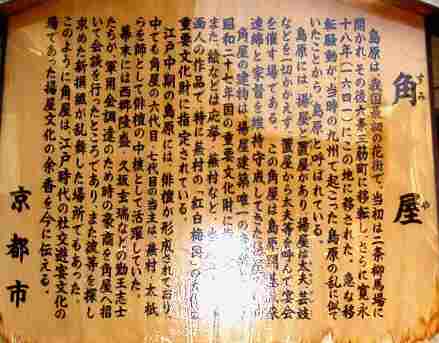 角屋
すみや
島原は我国最初の花街で、当初は二条柳馬場に
開かれ、その後六条三筋町に移転し、さらに寛永
十八年(一六四一)にこの地に移された。急な移
転騒動が、当時の九州で起こった島原の乱に似て
いたことから、島原と呼ばれている。
島原には、揚屋と置屋があり、揚屋は太夫・芸妓
などを一切かかえず、置屋から太夫等を呼んで宴会
を催す場である。この角屋は島原開
連綿と家督を維持守成してきた
角屋の建物は、揚屋建築唯一の
昭和二十七年国の重要文化財に
また、絵などは応挙、蕪村など
画人の作品で、特に蕪村の「紅白梅図」
重要文化財に指定されている。
江戸中期の島原には、俳壇が形成されており、
中でも角屋の六代目、七代目の当主は、蕪村、太祇
らを師として俳壇の中核として活躍していた。
幕末には西郷隆盛、久坂玄瑞などの勤王志士
たちが、軍用金調達のため時の豪商を角屋へ招
いて会談を行ったところであり、また彼等を探し
求めた新撰組が乱舞した場所でもあった。
このように角屋は、江戸時代の社交遊宴文化の
場であった揚屋文化の余香を今に伝える。
京都市